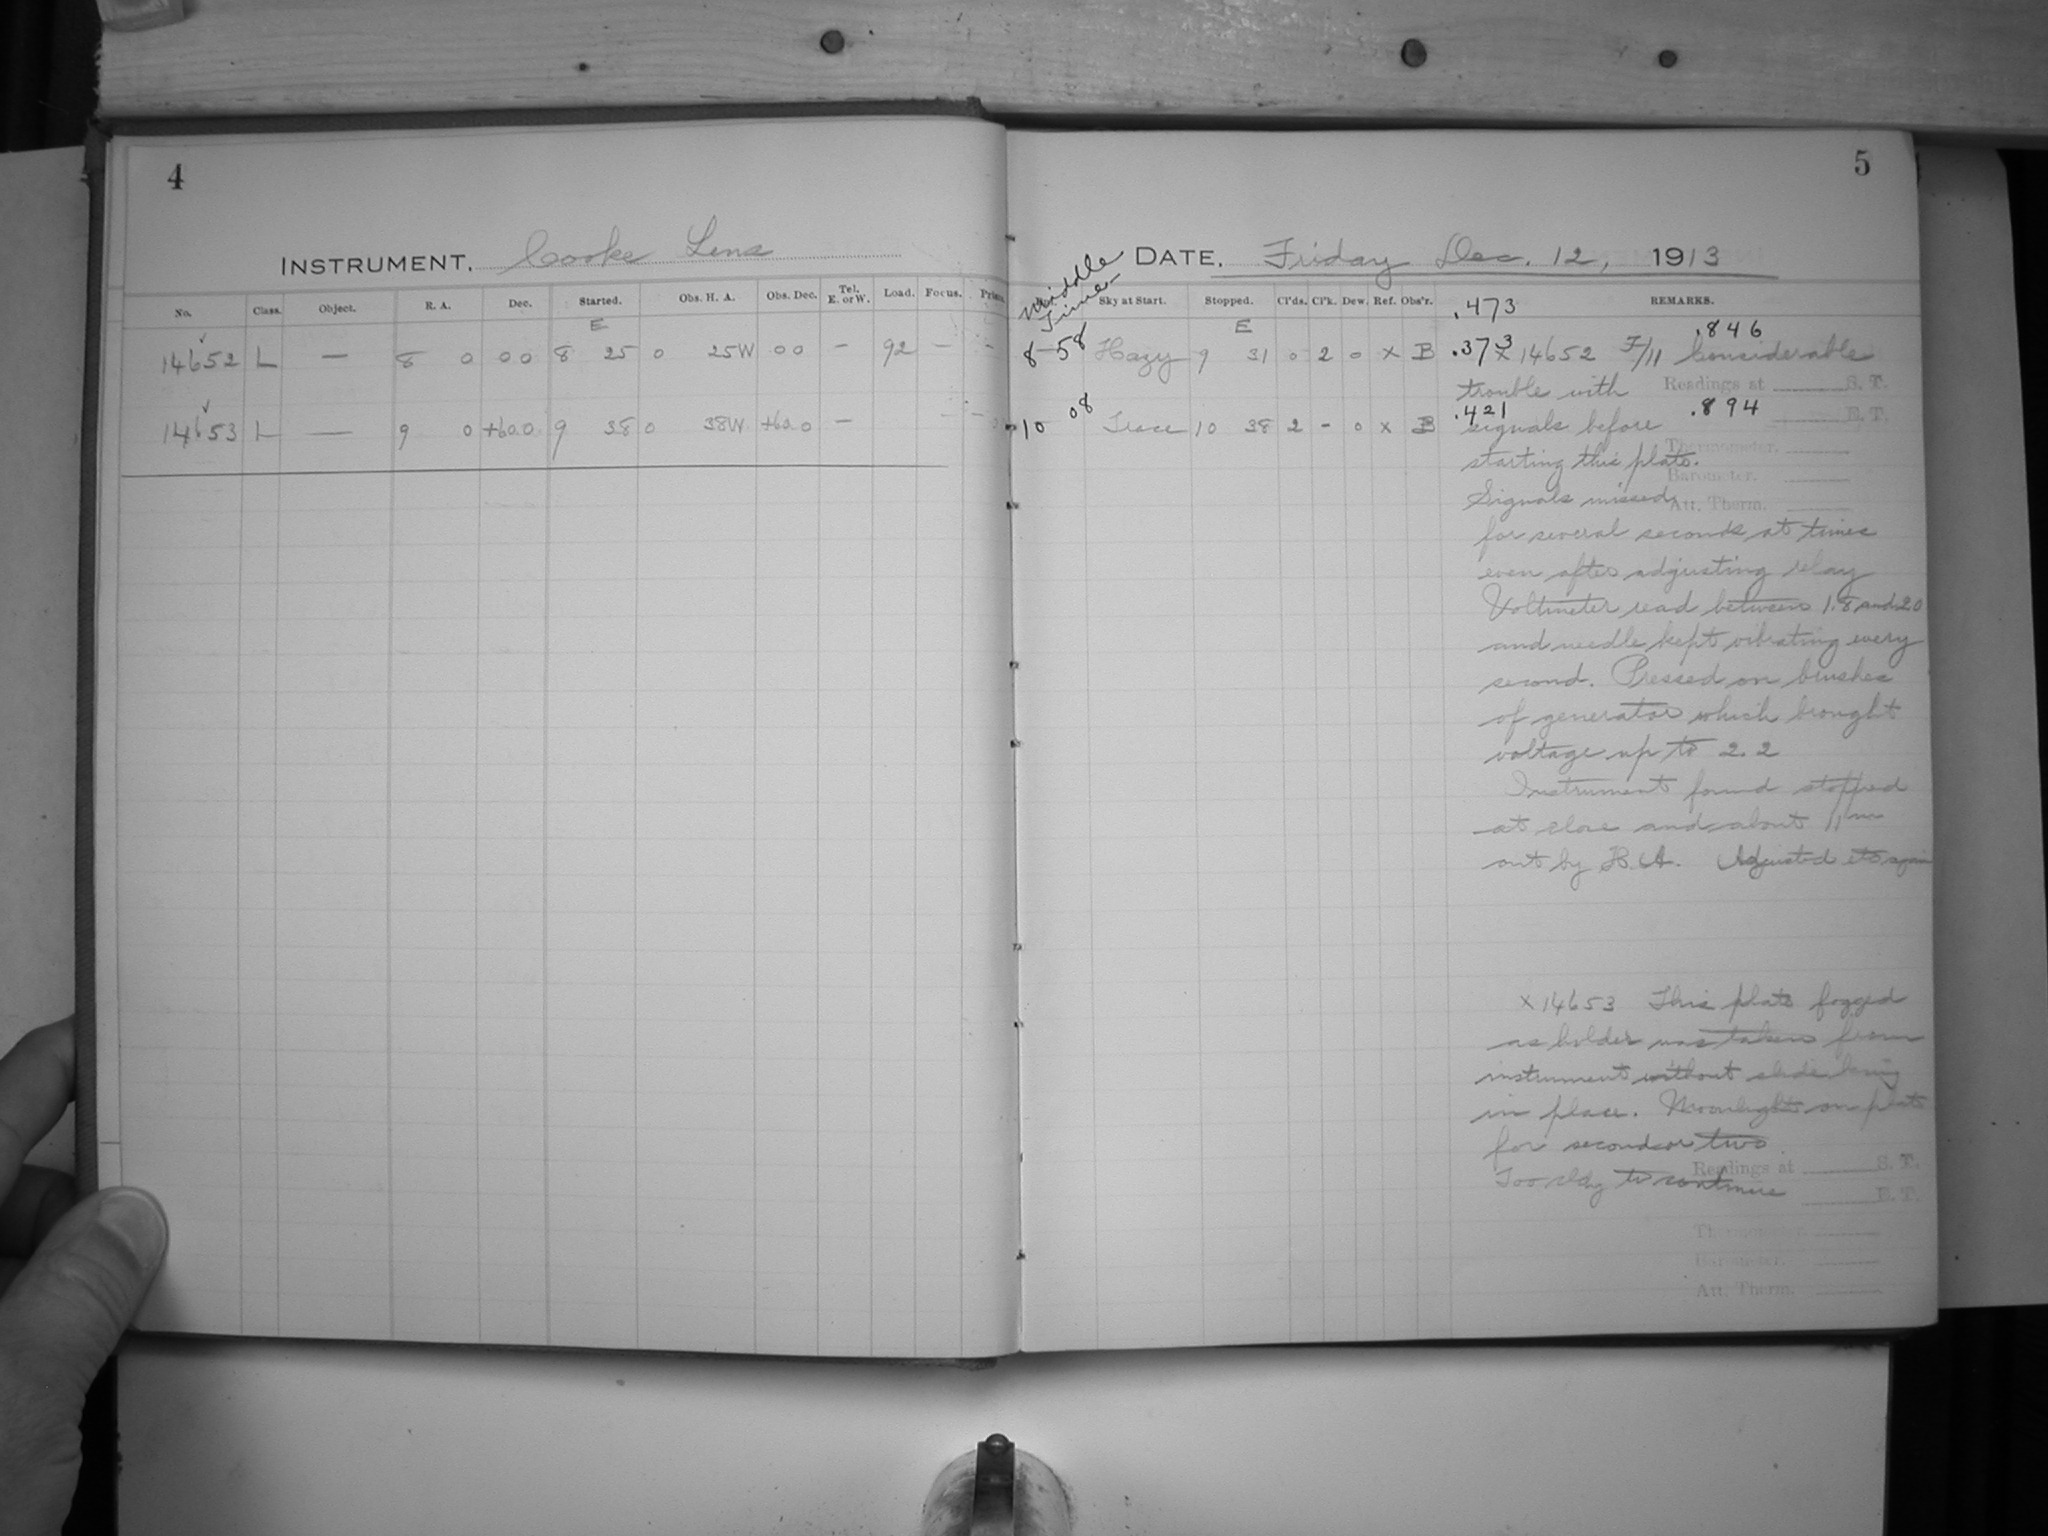 4
INSTRUMENT. Cooke Lens
No. Class. Object. R. A. Dec. Started. Obs. H. A. Obs. Dec. Tel. E. or W. Load. Focus.
E
14652 L — 8 0 00 8 25 0 25W 00 — 92 — —
14653 L — 9 0 +60 0 9 38 0 38W +60 0 — — —
5
DATE. Friday Dec. 12, 1913
Middle Time Sky at Start. Stopped. Cl'ds. Cl'k. Dew. Ref. Obs'r. REMARKS.
.473
E
.846
8-58 Hazy 9 31 0 2 0 x B .373 x 14652 F/11 Considerable
trouble with Readings at S. T.
.421 .894 E. T.
10 08 Trace 10 38 2 - 0 x B signals before
Thermometer.
starting this plate.
Barometer.
Signals missed
Att. Therm.
for several seconds at times
even after adjusting relay
Voltmeter read between 1.8 and 2.0
and needle kept vibrating every
second. Pressed on brushes
of generator which brought
voltage up to 2.2
Instrument found stopped
at close and about 11m
out by H.A. Adjusted etc again
x 14653 This plate fogged
as holder was taken from
instrument without slide being
in place. Moonlight on plate
for second or two
Readings at S. T.
Too cldy to continue
E. T.
Thermometer.
Barometer.
Att. Therm.